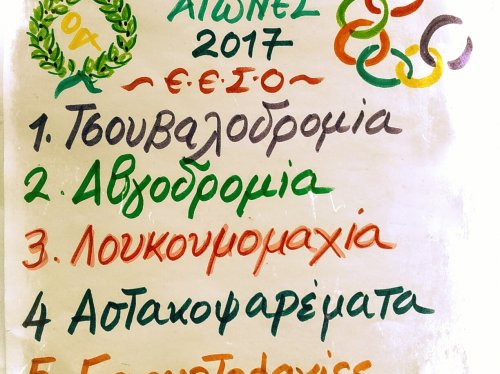 ΑΓΩΝΕΣ
2017
~Ε.Ε.Σ.Ο~
1. Τσουβαλοδρομία
2. Αβγοδρομία
3. Λουκουμομαχία
4 Αστακοψαρέματα
5.